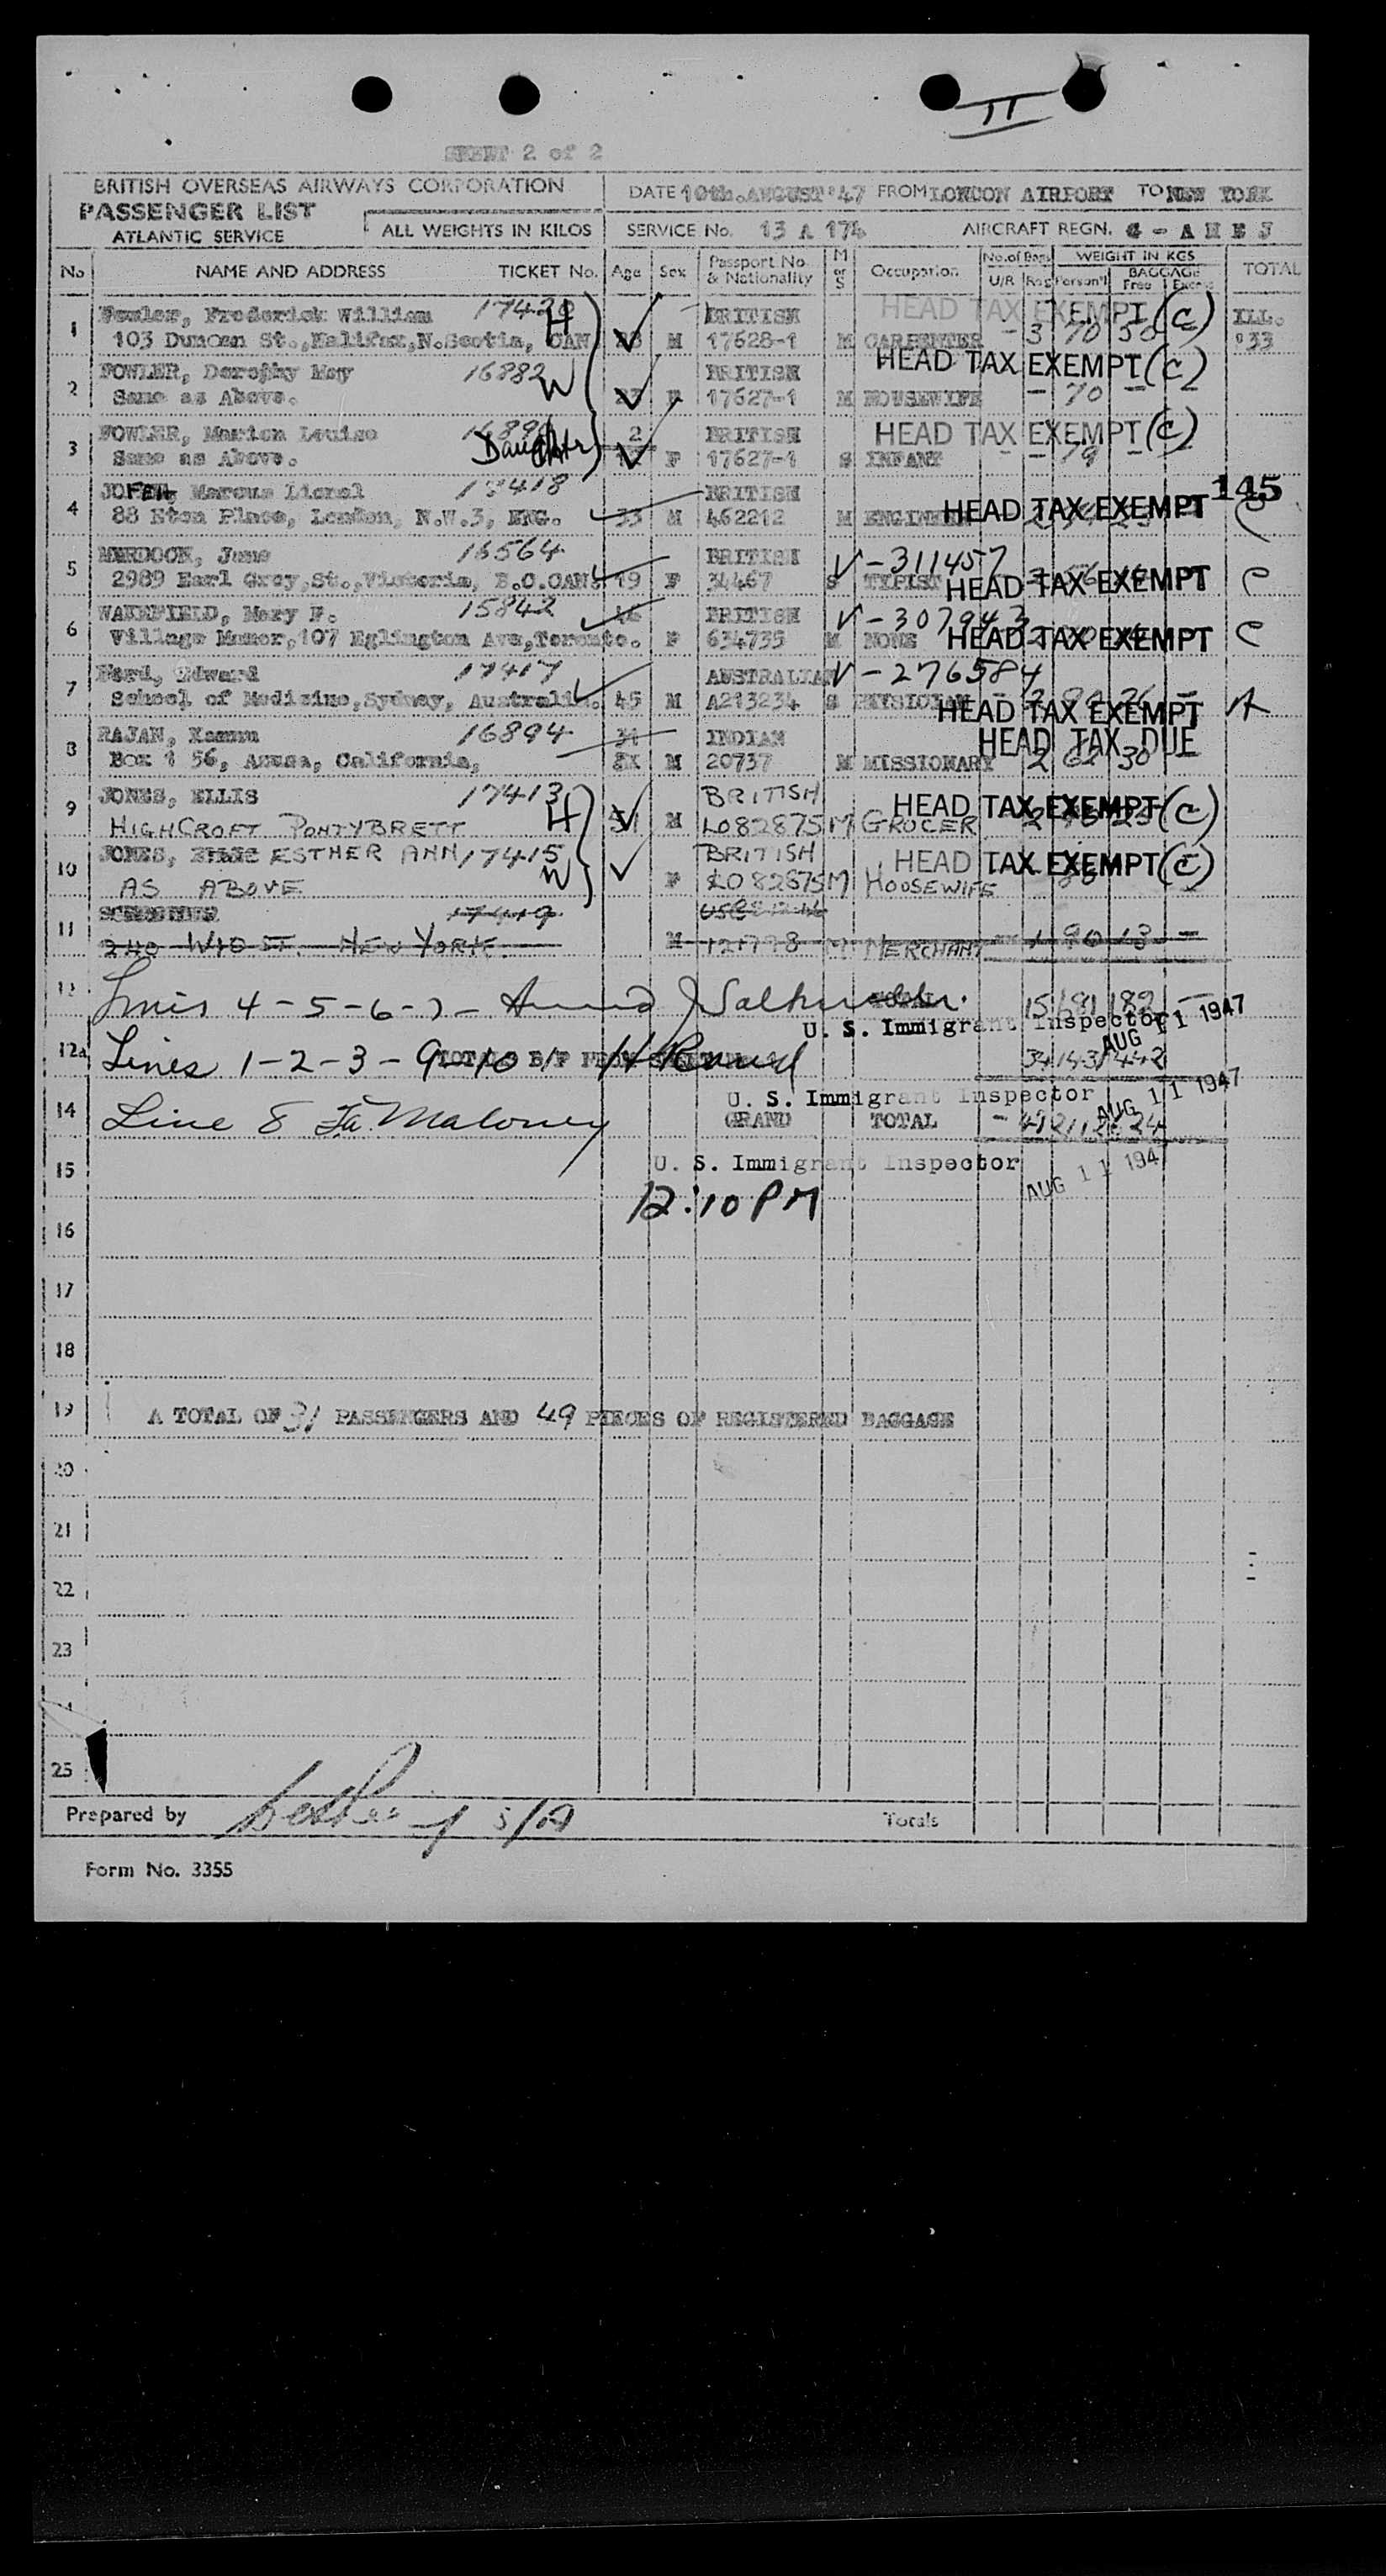 II
SHEET 2 of 2
BRITISH OVERSEAS AIRWAYS CORPORATION
PASSENGER LIST
ATLANTIC SERVICE
ALL WEIGHTS IN KILOS
DATE 10th. AUGUST '47 FROM LONDON AIRPORT TO NEW YORK
SERVICE No. 13 A 174 AIRCRAFT REGN. G - A H E J
No NAME AND ADDRESS TICKET No. Age Sex Passport No. & Nationality M or S Occupation No. of Bags U/R Reg WEIGHT IN KGS Person'l BAGGAGE Free Excess TOTAL
1 Fowler, Frederick William 17420 H BRITISH HEAD TAX EXEMPT (C) ILL.
103 Duncan St., Halifax, N.Scotia, CAN M 17628-1 M CARPENTER - 3 70 50 '33
2 FOWLER, Dorothy May 16882 W BRITISH HEAD TAX EXEMPT (C)
Same as Above. F 17627-1 M HOUSEWIFE - 70 - -
3 FOWLER, Marion Louise Daughter 2 BRITISH HEAD TAX EXEMPT (C)
Same as Above. F 17627-1 S INFANT - - 19 - -
4 Marcus Lionel 17418 BRITISH HEAD TAX EXEMPT 145
88 Eton Place, London, N.W.3, ENG. 33 M 462212 M ENGINEER C
5 MURDOCK, June 16564 BRITISH V-311457
2989 Earl Grey, St., Victoria, B.C. CAN. 19 F 34467 S TYPIST HEAD TAX EXEMPT C
6 WAKEFIELD, Mary F. 15842 BRITISH V-307943
Village Manor, 107 Eglington Ave, Toronto. F 634735 M NONE HEAD TAX EXEMPT C
7 Ford, Edward 17417 AUSTRALIAN V-276584
School of Medicine, Sydney, Australia. 45 M A213234 S PHYSICIAN HEAD TAX EXEMPT A
8 RAJAN, 16894 31 INDIAN HEAD TAX DUE
Box 1 56, Azusa, California, M 20737 M MISSIONARY 2 62 30 -
9 JONES, ELLIS 17413 H BRITISH HEAD TAX EXEMPT (C)
HIGHCROFT PONTYBRETT 51 M L082875 M GROCER
10 JONES, ESTHER ANN 17415 W BRITISH HEAD TAX EXEMPT (C)
AS ABOVE F L082875 M HOUSEWIFE
11 17419
240 W10 ST. NEW YORK. M 121798 M MERCHANT 1 90 13 -
Lines 4-5-6-7-
U. S. Immigrant Inspector AUG 11 1947
Lines 1-2-3-9-10
U. S. Immigrant Inspector AUG 11 1947
14 Line 8 Maloney GRAND TOTAL
15 U. S. Immigrant Inspector AUG 11 194
12:10 PM
16
17
18
19 A TOTAL OF 31 PASSENGERS AND 49 PIECES OF REGISTERED BAGGAGE
20
21
22
23
25
Prepared by Totals
Form No. 3355